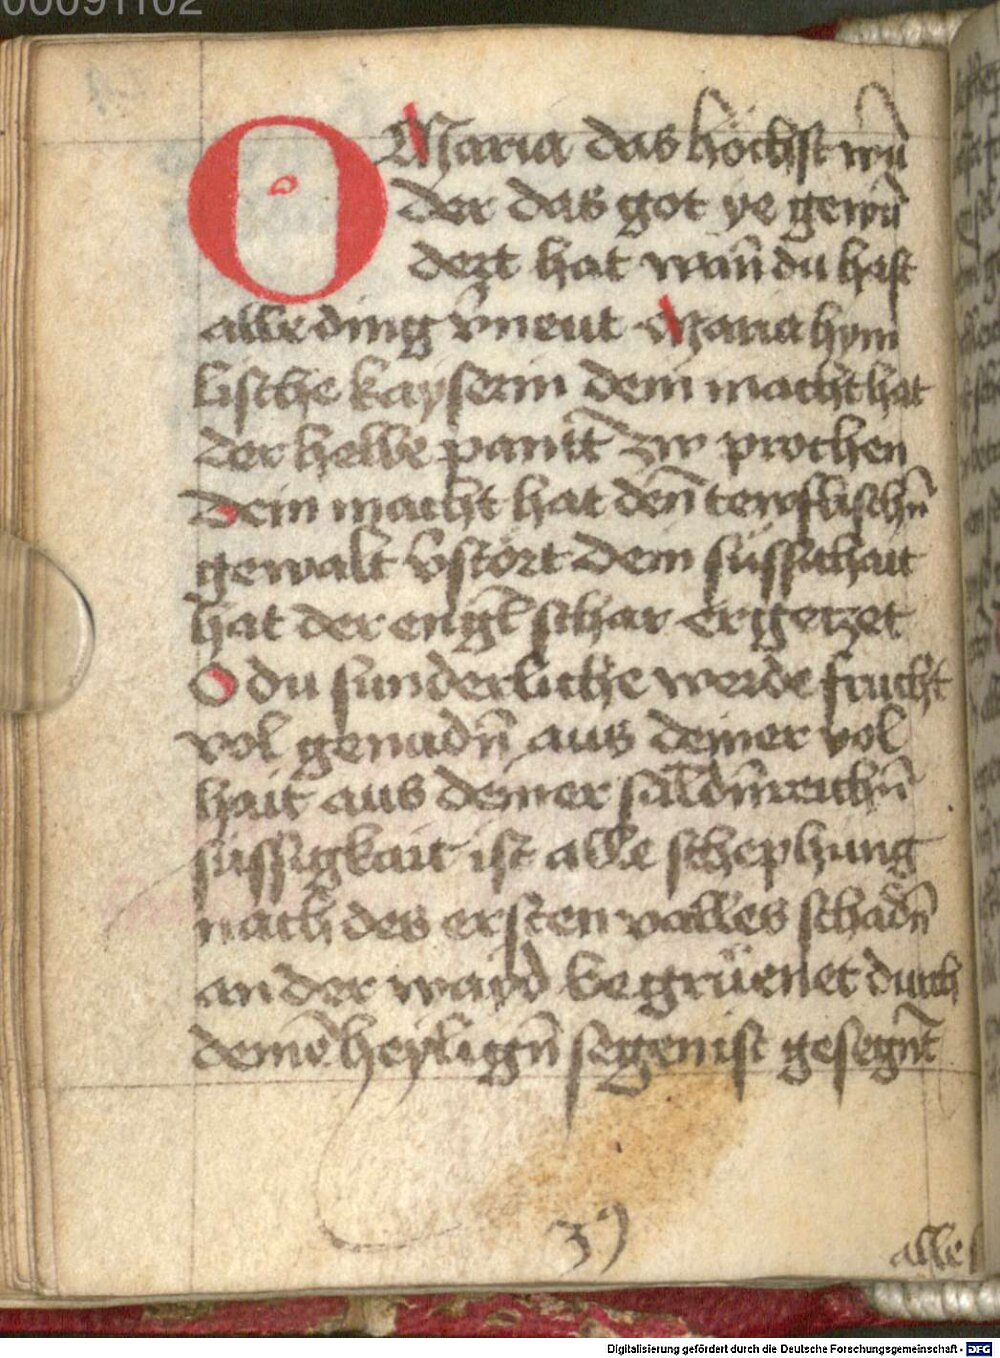 00091102
O Maria das höchst wu̅
der das got ye gewu̅
dert hat wan̅ du hast
alle ding v̅neut Maria hym
lische kayserin dein macht hat
der helle pantt zw prochen
Dein macht hat den̅ tewflischn̅
gewalt v̅stört Dein süssichait
hat der engl̅ schar ergetzet
O du sunderliche werde frucht
vol genadn̅ aus deiner vol
hait aus deiner säldn̅reichn̅
süssigkait ist alle schephung
nach des ersten valles schadn̅
an der wayd begrüenet durch
deine̅ heylign̅ segen ist gesegnt̅
alle
Digitalisierung gefördert durch die Deutsche Forschungsgemeinschaft - DFG